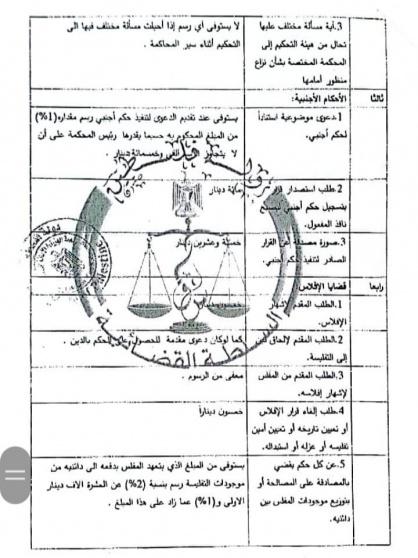 3.أية مسألة مختلف عليها
تحال من هيئة التحكيم إلى
المحكمة المختصة بشأن نزاع
منظور أمامها
لا يستوفى أي رسم إذا أحيلت مسألة مختلف فيها الى
التحكيم أثناء سير المحاكمة .
ثالثا
الأحكام الأجنبية:
1.دعوى موضوعية استناداً
لحكم أجنبي.
يستوفى عند تقديم الدعوى لتنفيذ حكم أجنبي رسم مقداره (1%)
من المبلغ المحكوم به حسبما يقدرها رئيس المحكمة على أن
لا يتجاوز وخمسمائة دينار
2.طلب استصدار قرار
بتسجيل حكم أجنبي
نافذ المفعول.
دينار
3.صورة مصدقة عن القرار
الصادر لتنفيذ حكم أجنبي.
خمسة وعشرين دينار
رابعا
قضايا الإفلاس
1.الطلب المقدم لإشهار
الإفلاس.
خمسون
2.الطلب المقدم لإلحاق دين
إلى التفليسة.
كما لوكان دعوى مقدمة للحصول على حكم بالدين .
3.الطلب المقدم من المفلس
لإشهار إفلاسه.
معفى من الرسوم .
4.طلب إلغاء قرار الإفلاس
أو تعيين تاريخه أو تعيين أمين
تفليسه أو عزله أو استبداله.
خمسون ديناراً
5.عن كل حكم يقضي
بالمصادقة على المصالحة أو
بتوزيع موجودات المفلس بين
دائنيه.
يستوفى من المبلغ الذي يتعهد المفلس بدفعه الى دائنيه من
موجودات التفليسة رسم بنسبة (2%) عن العشرة الاف دينار
الاولى و(1%) عما زاد على هذا المبلغ .
السلطة القضائية